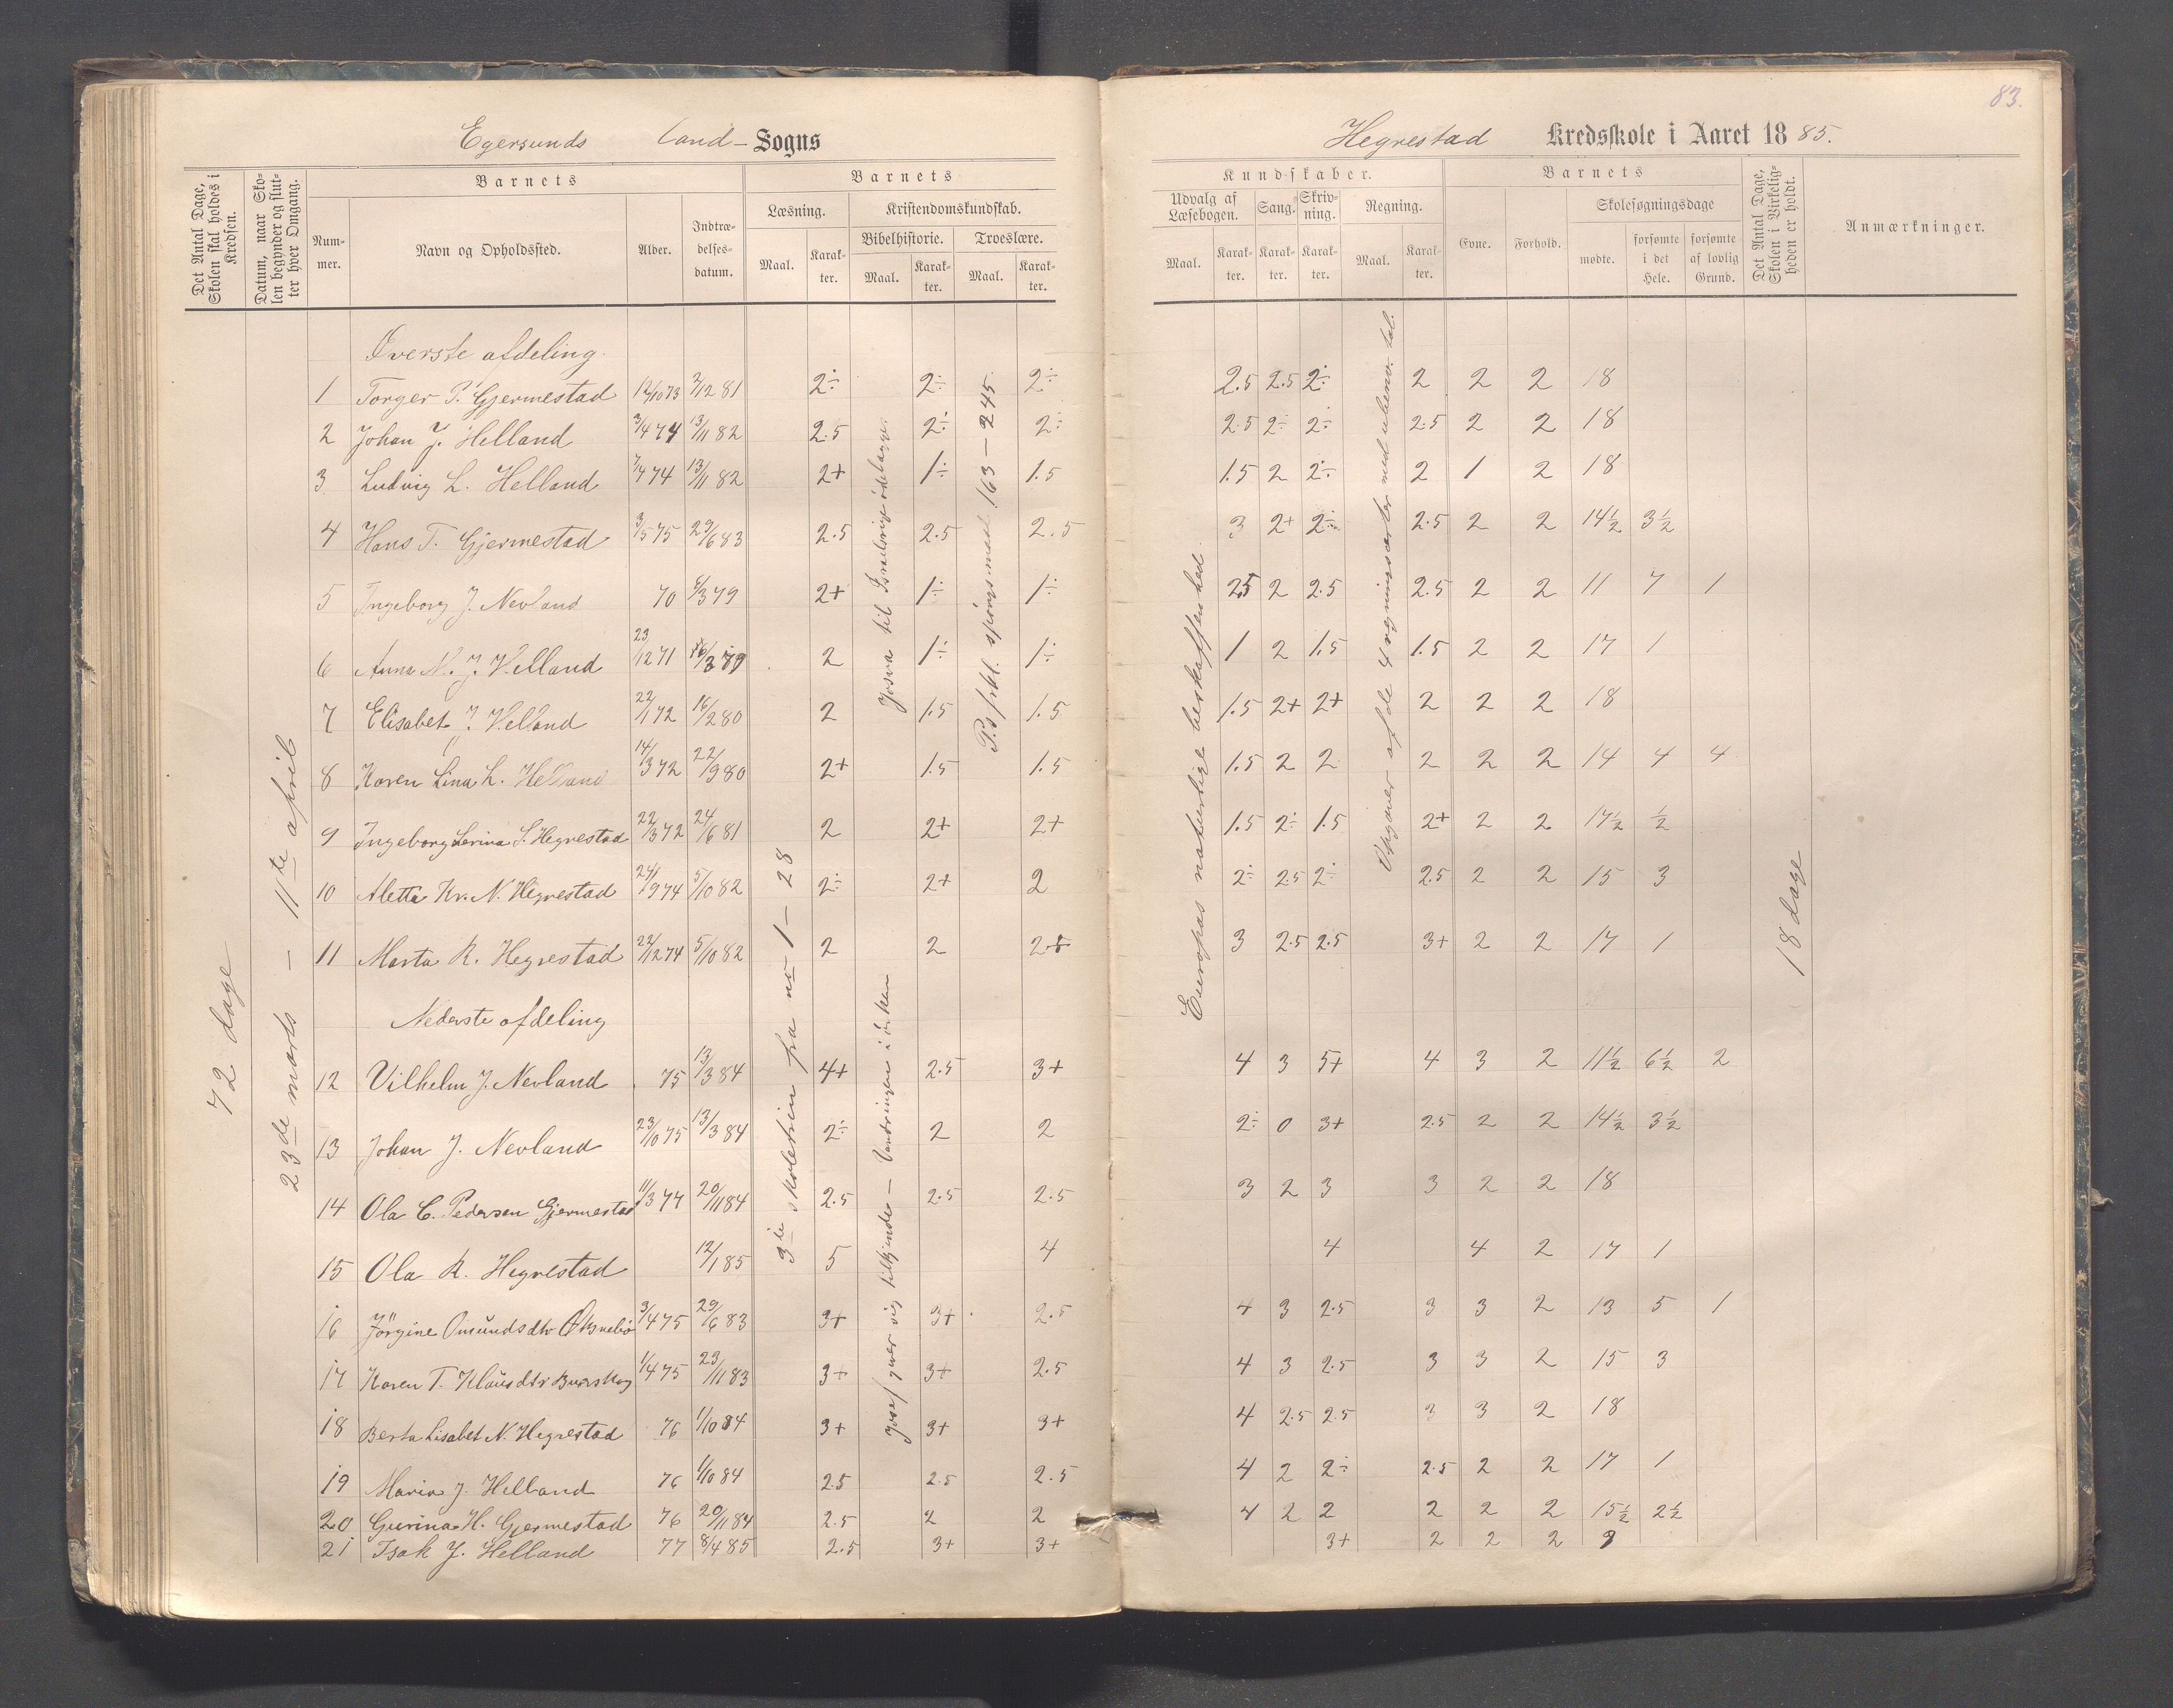 83.
Egersunds Land- Sogns
Hegrestad Kredsskole i Aaret 1885.
Det Antal Dage, Skolen skal holdes i Kredsen.
Datum, naar Skolen begynder og slutter hver Omgang.
Barnets
Nummer.
Navn og Opholdssted.
Alder.
Indtrædelsesdatum.
Barnets
Læsning.
Maal.
Karakter.
Kristendomskundskab.
Bibelhistorie.
Maal.
Karakter.
Troeslære.
Maal.
Karakter.
Kundskaber.
Udvalg af Læsebogen.
Maal.
Karakter.
Sang.
Karakter.
Skrivning.
Karakter.
Regning.
Maal.
Karakter.
Barnets
Evne.
Forhold.
Skolesøgningsdage
mødte.
forsømte i det Hele.
forsømte af lovlig Grund.
Det Antal Dage, Skolen i Virkeligheden er holdt.
Anmærkninger.
72 dage
23de marts — 11te april
3ie skoletrin fra no 1 – 28
Josef giver sig tilkjende — Vandringen i örken
163 – 245
Europas naturlige beskaffenhed
Opgaver af de 4 regningsarter med ubenv. tal.
18 dage
Øverste afdeling.
1 Torger P. Gjermestad 12/10 73 2/12 81 2÷ 2÷ 2÷ 2.5 2.5 2÷ 2 2 2 18
2 Johan J. Helland 3/4 74 13/11 82 2.5 2÷ 2÷ 2.5 2÷ 2÷ 2.5 2 2 18
3 Ludvig L. Helland 7/4 74 13/11 82 2+ 1÷ 1.5 1.5 2 2÷ 2 1 2 18
4 Hans T. Gjermestad 3/5 75 29/6 83 2.5 2.5 2.5 3 2+ 2÷ 2.5 2 2 14½ 3½
5 Ingeborg J. Nevland 70 6/3 79 2+ 1÷ 1÷ 2.5 2 2.5 2.5 2 2 11 7 1
6 Anna N. J. Helland 23/12 71 2 1÷ 1÷ 1 2 1.5 1.5 2 2 17 1
7 Elisabet J. Helland 22/1 72 16/2 80 2 1.5 1.5 1.5 2+ 2+ 2 2 2 18
8 Karen Lina L. Helland 14/3 72 22/9 80 2+ 1.5 1.5 1.5 2 2 2 2 2 14 4 4
9 Ingeborg Serina S. Hegrestad 22/3 72 24/6 81 2 2+ 2+ 1.5 2÷ 1.5 2+ 2 2 17½ ½
10 Aletta Kr. N. Hegrestad 24/9 74 5/10 82 2÷ 2+ 2 2÷ 2.5 2÷ 2.5 2 2 15 3
11 Marta R. Hegrestad 22/12 74 5/10 82 2 2 2+ 3 2.5 2.5 3+ 2 2 17 1
Nederste afdeling
12 Vilhelm J. Nevland 75 13/3 84 4+ 2.5 3+ 4 3 5+ 4 3 2 11½ 6½ 2
13 Johan J. Nevland 23/10 75 13/3 84 2÷ 2 2 2÷ 0 3+ 2.5 2 2 14½ 3½
14 Ola C. Pedersen Gjermestad 11/3 77 20/11 84 2.5 2.5 2.5 3 2 3 3 2 2 18
15 Ola R. Hegrestad 12/1 85 5 4 4 4 2 17 1
16 Jörgine Omundsdtr 3/4 75 29/6 83 3+ 3+ 2.5 4 3 2.5 3 3 2 13 5 1
17 Karen T. Klausdtr 1/4 75 23/11 83 3+ 3+ 2.5 4 3 2.5 3 3 2 15 3
18 Berta Lisabet N. Hegrestad 76 1/10 84 3+ 3+ 3+ 4 2.5 2.5 3 3 2 18
19 Maria J. Helland 76 1/10 84 2.5 2.5 2.5 4 2 2÷ 2.5 2 2 17 1
20 Gurina H. Gjermestad 76 20/11 84 2.5 2 2 4 2 2 2 2 2 15½ 2½
21 Isak J. Helland 77 8/4 85 2.5 3+ 3+ 3+ 2 2 2 9